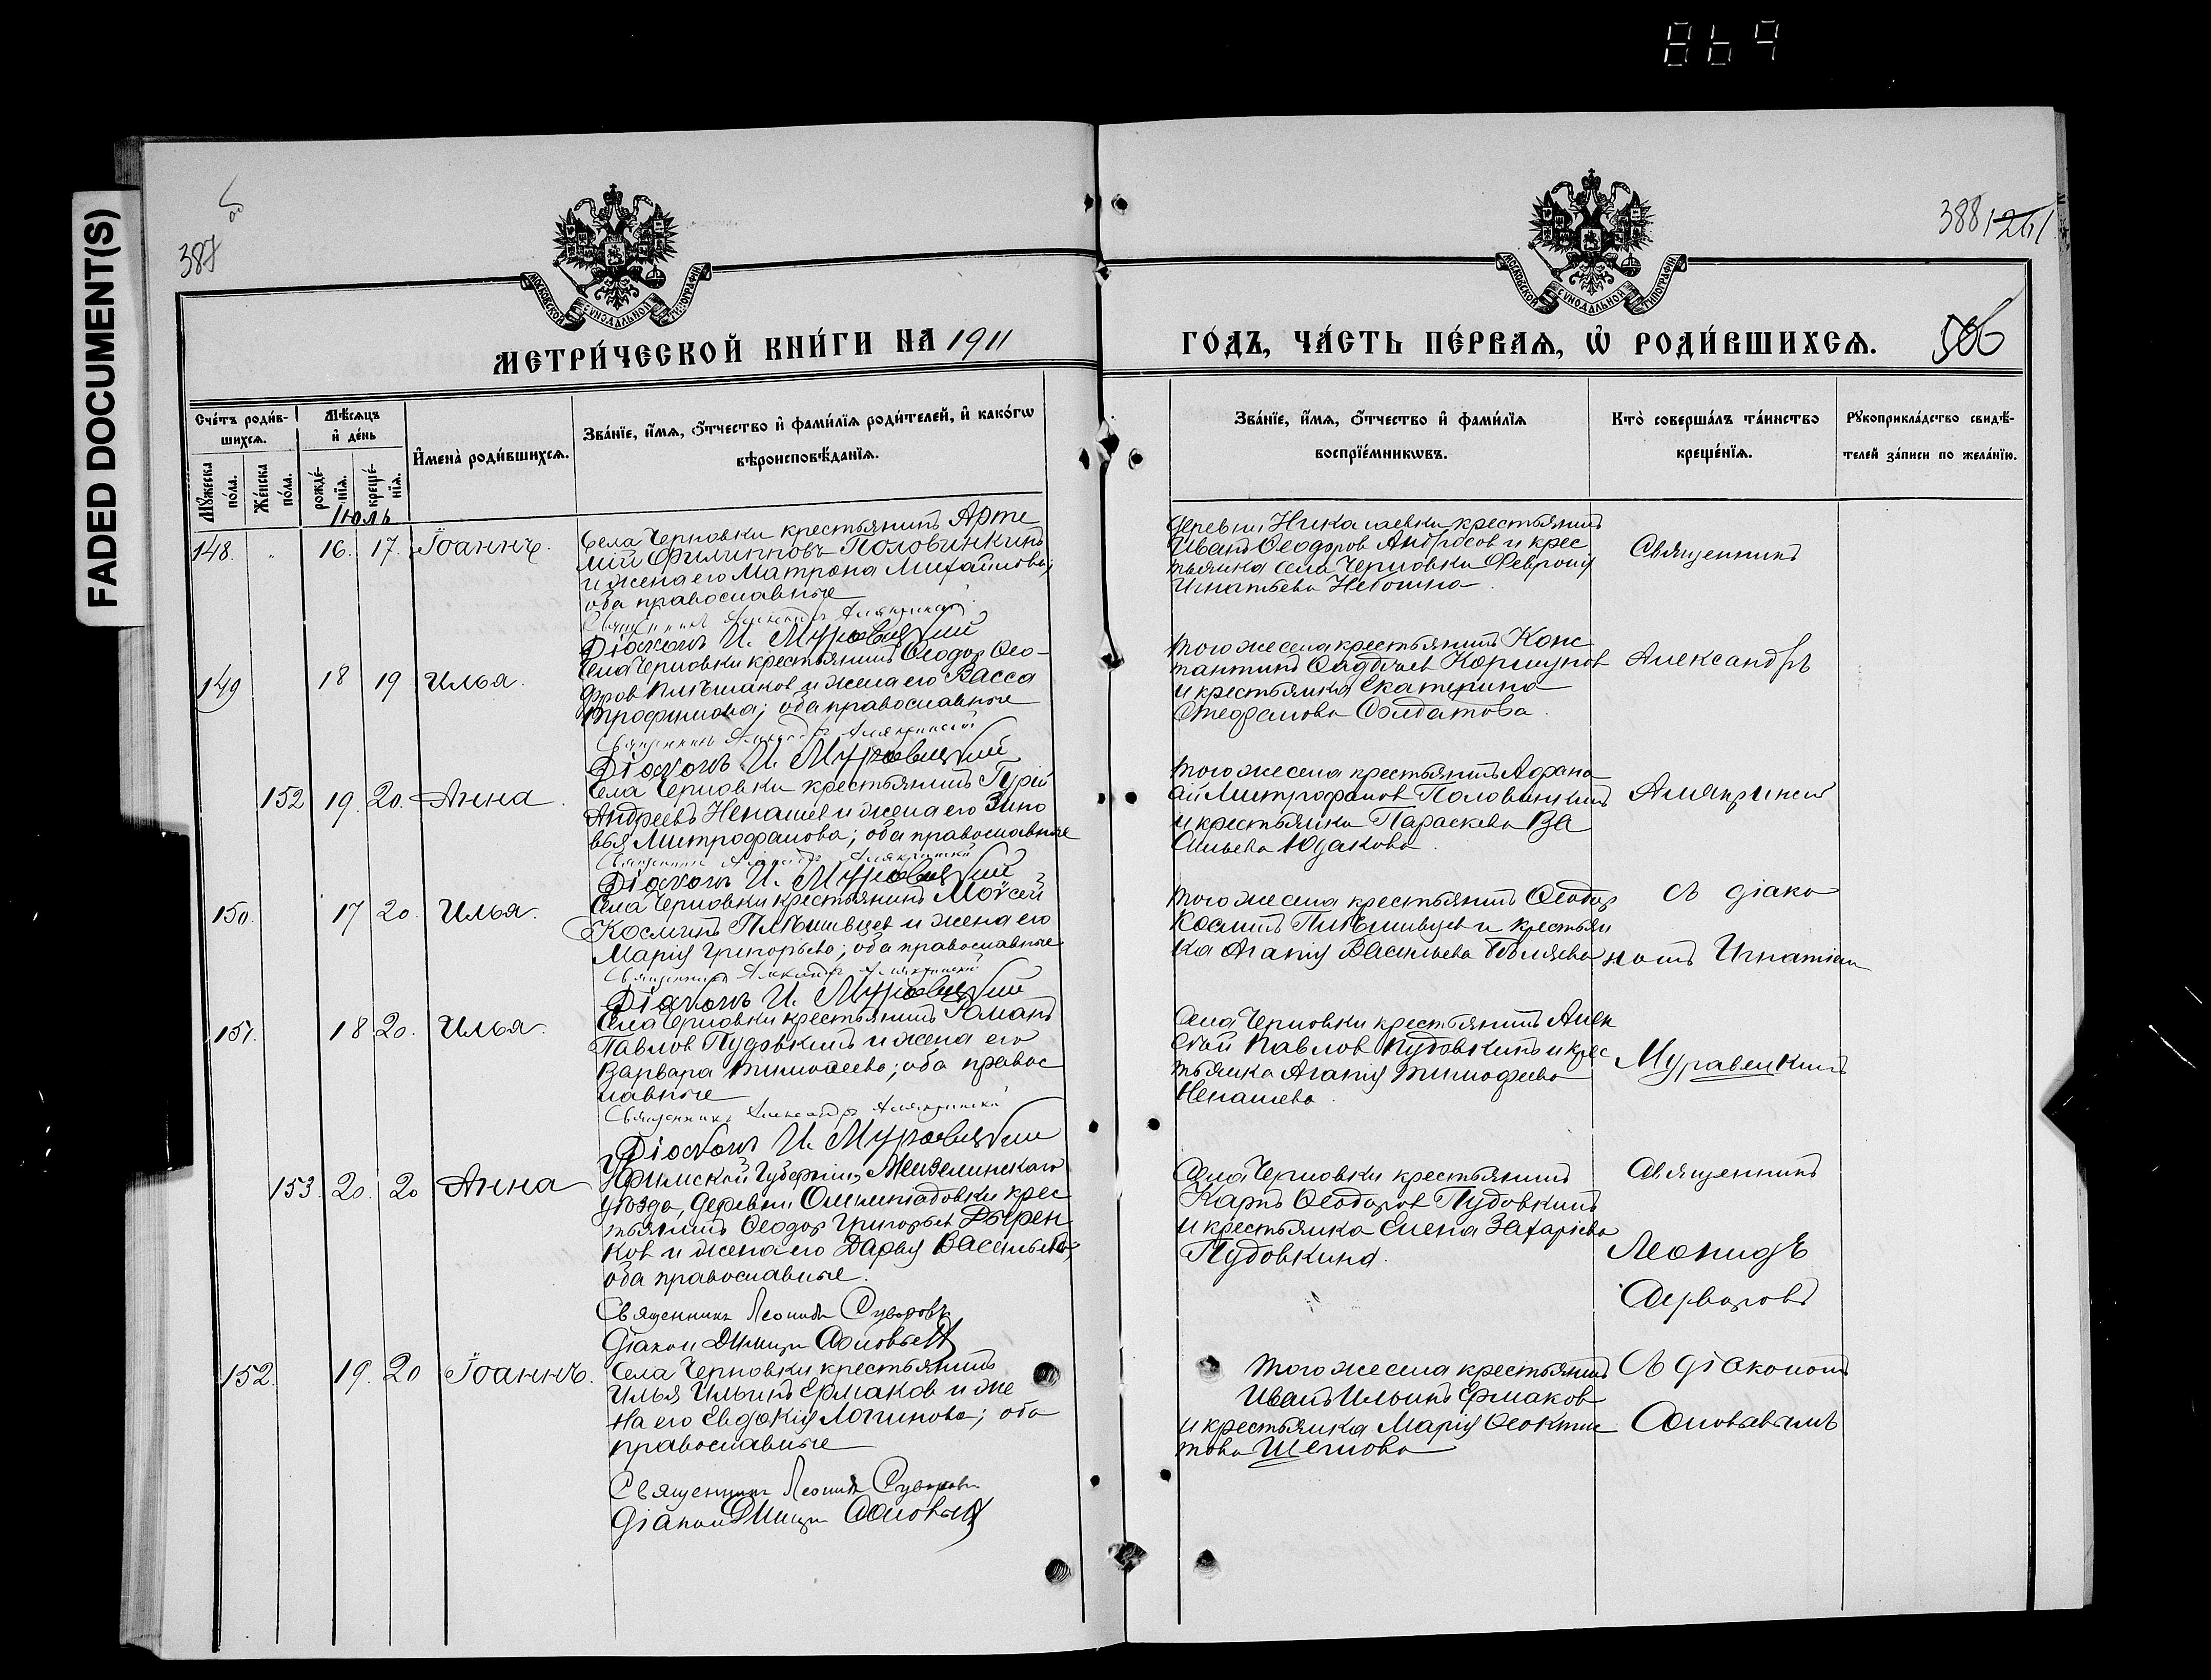 869
FADED DOCUMENT(S)
387
388
МОСКОВСКОЙ СѴНОДАЛЬНОЙ ТИПОГРАФІИ
МОСКОВСКОЙ СѴНОДАЛЬНОЙ ТИПОГРАФІИ
МЕТРИ́ЧЕСКОЙ КНИ́ГИ НА 1911
ГО́ДЪ, ЧА́СТЬ ПЕ́РВАѦ, Ѡ҆ РОДИ́ВШИХСѦ.
506
Сче́тъ роди́в-
шихсѧ.
Мѣ́сѧцъ
и҆ де́нь
И҆мена̀ роди́вшихсѧ.
Зва́нїе, и҆́мѧ, ѻ҆́тчество и҆ фами́лїѧ роди́телей, и҆ како́гѡ
вѣроисповѣ́данїѧ.
Мꙋ́жеска
по́ла.
Же́нска
по́ла.
рожде́-
нїѧ.
креще́-
нїѧ.
Зва́нїе, и҆́мѧ, ѻ҆́тчество и҆ фами́лїѧ
воспрїе́мникѡвъ.
Кто̀ соверша́лъ та́инство
креще́нїѧ.
Рꙋкоприкла́дство свидѣ́-
телей за́писи по жела́нїю.
Іюль
148. 16. 17. Іоаннъ.
Села Черновки крестьянинъ Арте
мій Филипповъ Половинкинъ
и жена его Матрона Михайлова;
оба православные
Священникъ Александръ Алякринскій
Діаконъ И. Муравицкій
Деревни Николаевки крестьянинъ
Иванъ Ѳеодоров Андросов и крес
тьянка села Черновки Феврония
Игнатьева
Священникъ
149 18 19 Илья.
Села Черновки крестьянинъ Ѳеодор Ѳео-
доров Плѣшаков и жена его Васса
Трофимова; оба православные
Священникъ Александръ Алякринскій
Діаконъ И. Муравицкій
того же села крестьянинъ Конс
тантинъ Коршунов
и крестьянка Екатерина
Стефанова Солдатова.
Александръ
152 19. 20. Анна.
Села Черновки крестьянинъ Гурій
Андреевъ Ненашев и жена его Зино
вья Митрофанова; оба православные
Священникъ Александръ Алякринскій
Діаконъ И. Муравицкій
того же села крестьянинъ Афана
сій Митрофанов Половинкинъ
и крестьянка Параскева Ва
сильева Юдакова.
Алякринскій
150. 17 20. Илья.
Села Черновки крестьянинъ Моѵсей
Космин Плѣшивцев и жена его
Марія Григорьева; оба православные
Священникъ Александръ Алякринскій
Діаконъ И. Муравицкій
того же села крестьянинъ Ѳеодор
Косминъ Плѣшивцев и крестьян
ка Агапія Васильева Бѣляева
съ діако
номъ Игнатіем
151. 18 20. Илья.
Села Черновки крестьянинъ Романъ
Павлов Пудовкинъ и жена его
Варвара Тимоѳеева; оба правос
лавные
Священникъ Александръ Алякринскій
Діаконъ И. Муравицкій
Села Черновки крестьянинъ Алек
сѣй Павлов Пудовкинъ и крес
тьянка Агапія Тимофеева
Ненашева.
Муравицкимъ
153. 20. 20 Анна
Уфимской губерніи, Мензелинскаго
уѣзда, деревни Олимпіадовки крес
тьянинъ Ѳеодор Григорьев Дырен
ков и жена его Дарья Васильева;
оба православные.
Священникъ Леонидъ Суворовъ
Діакон Димитр Соловьев
Села Черновки крестьянинъ
Карпъ Ѳеодоров Пудовкинъ
и крестьянка Елена Захаріева
Пудовкина.
Священникъ
Леонидъ
Суворовъ
152. 19. 20 Іоаннъ.
Села Черновки крестьянинъ
Илья Ильинъ Ермаков и же
на его Евдокія Логинова; оба
православные
Священникъ Леонидъ Суворовъ
Діакон Димитр Соловьев
того же села крестьянинъ
Иванъ Ильинъ Ермаков
и крестьянка Марія Ѳеоктис
това
съ діакономъ
Соловьевымъ